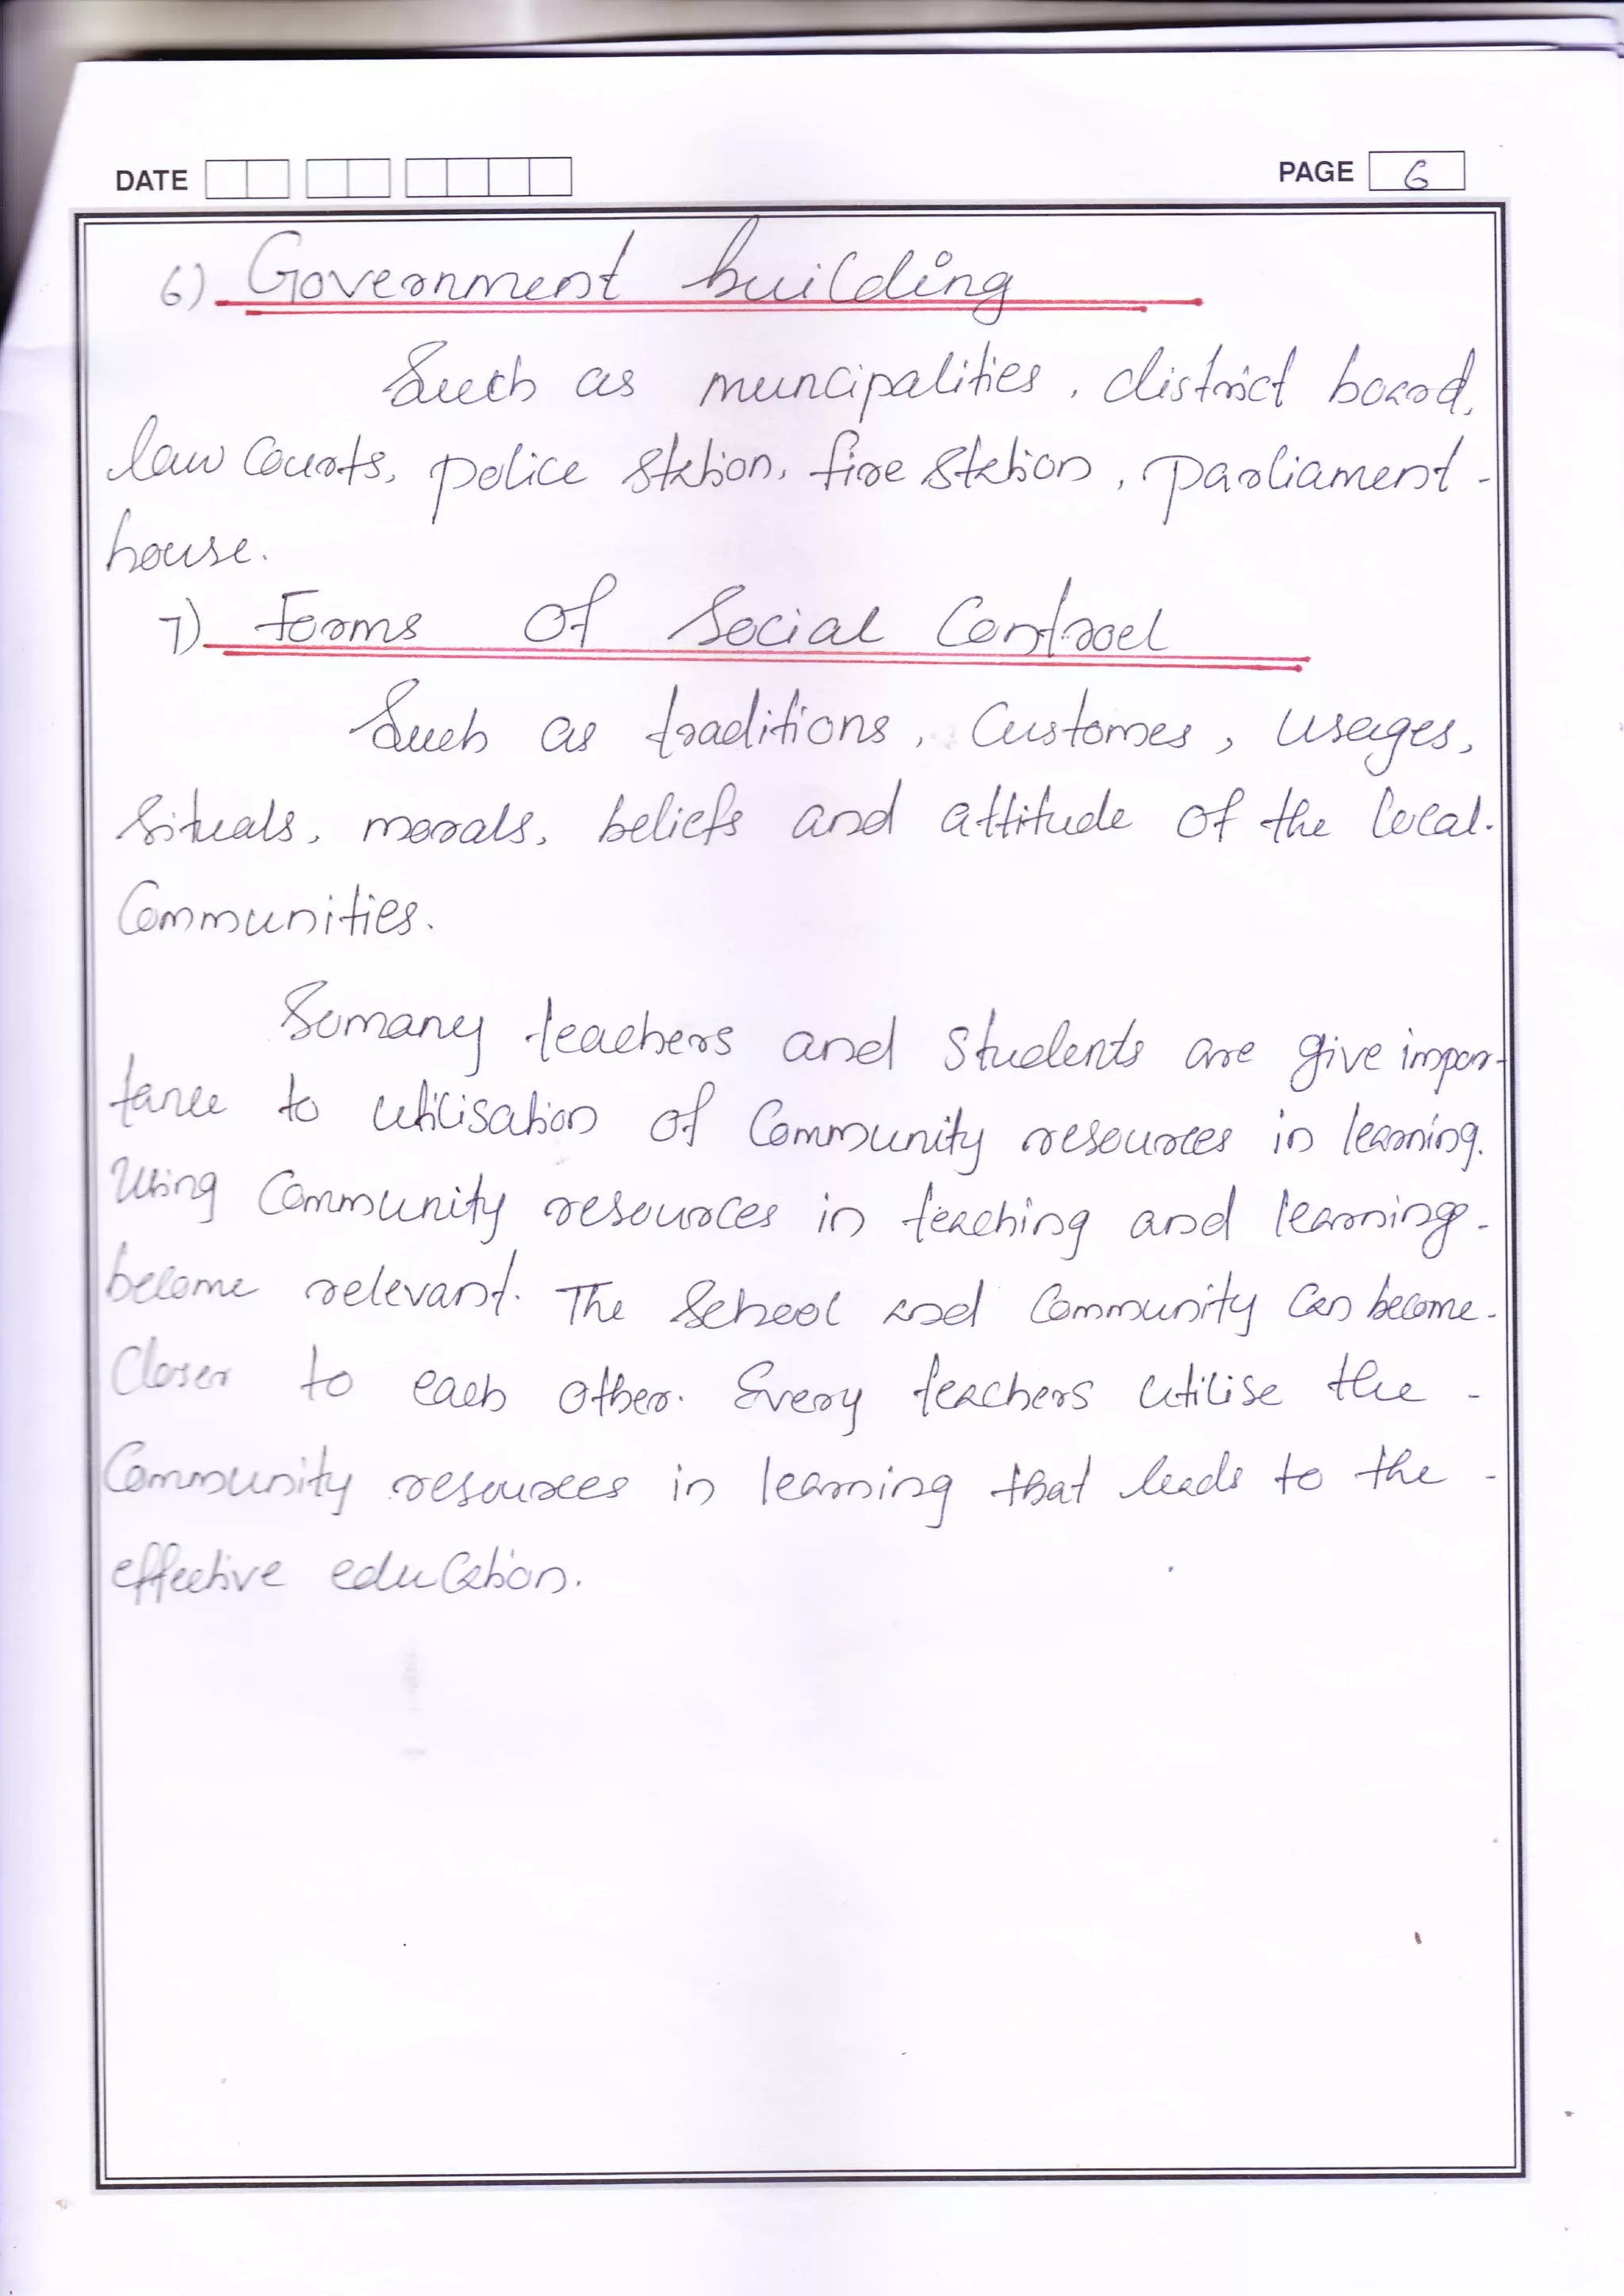 DATE PAGE 6
6) Government building
Such as muncipalities, district board,
law courts, police station, fire station, parliament -
house.
7) Forms of Social Control
Such as traditions, Customes, usages,
rituals, morals, beliefs and attitude of the local.
Communities.
Somany teachers and students are give impor-
tance to utilisation of Community resources in learning.
Using Community resources in teaching and learning -
become relevant. The School and Community can become -
Closer to each other. Every teachers utilise the -
Community resources in learning that leads to the -
effective education.